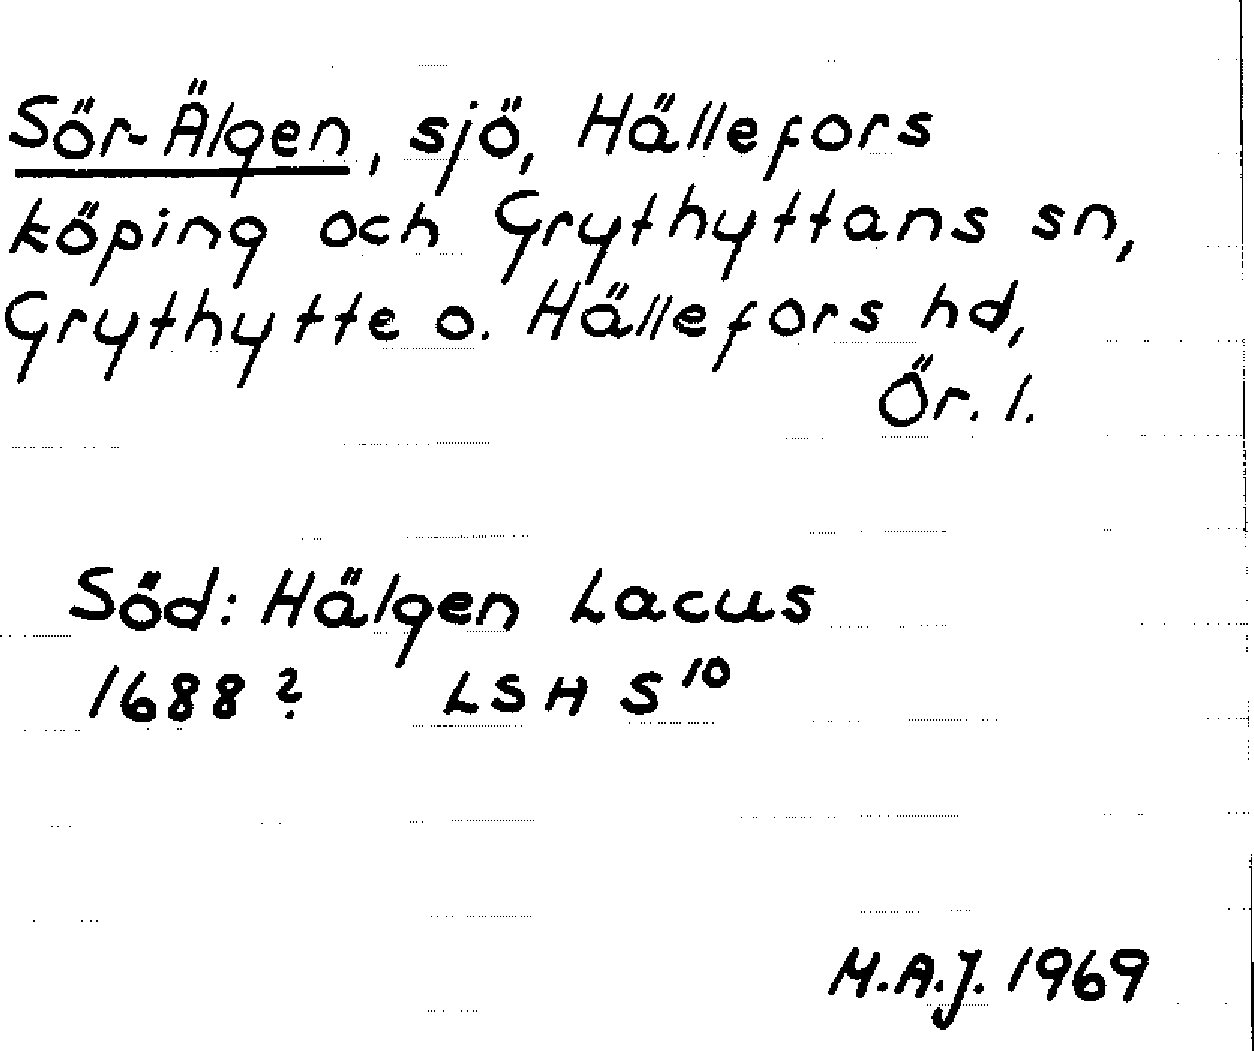 Sör-Älgen, sjö, Hällefors
köping och Grythyttans sn,
Grythytte o. Hällefors hd,
Ör. l.
Söd: Hälgen Lacus
1688? LSH S 10
M.A.J. 1969